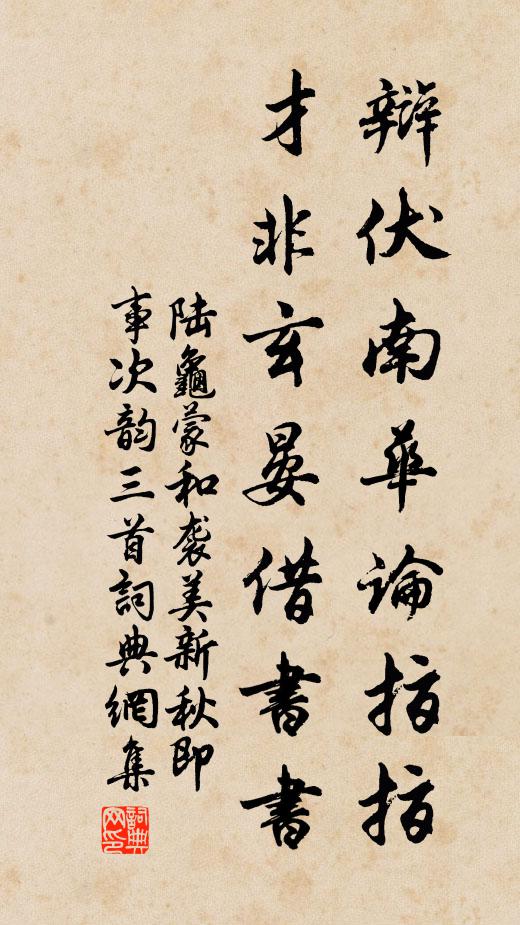 辯伏南華論指指
才非玄晏借書書
陆龜蒙和袭美新秋即
事次韵三首詞典網集
詞典网印